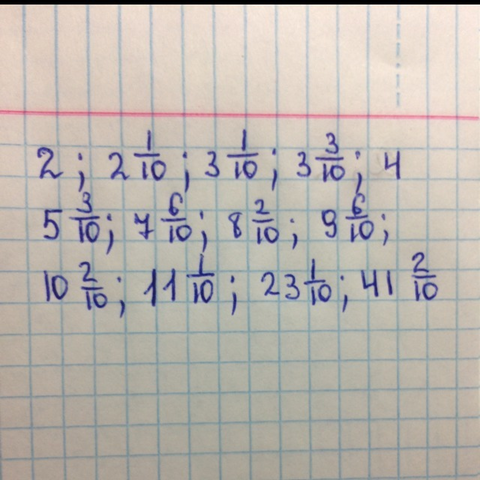 2 ; 2 1/10 ; 3 1/10 ; 3 3/10 ; 4
5 3/10 ; 7 6/10 ; 8 2/10 ; 9 6/10 ;
10 2/10 ; 11 1/10 ; 23 1/10 ; 41 2/10